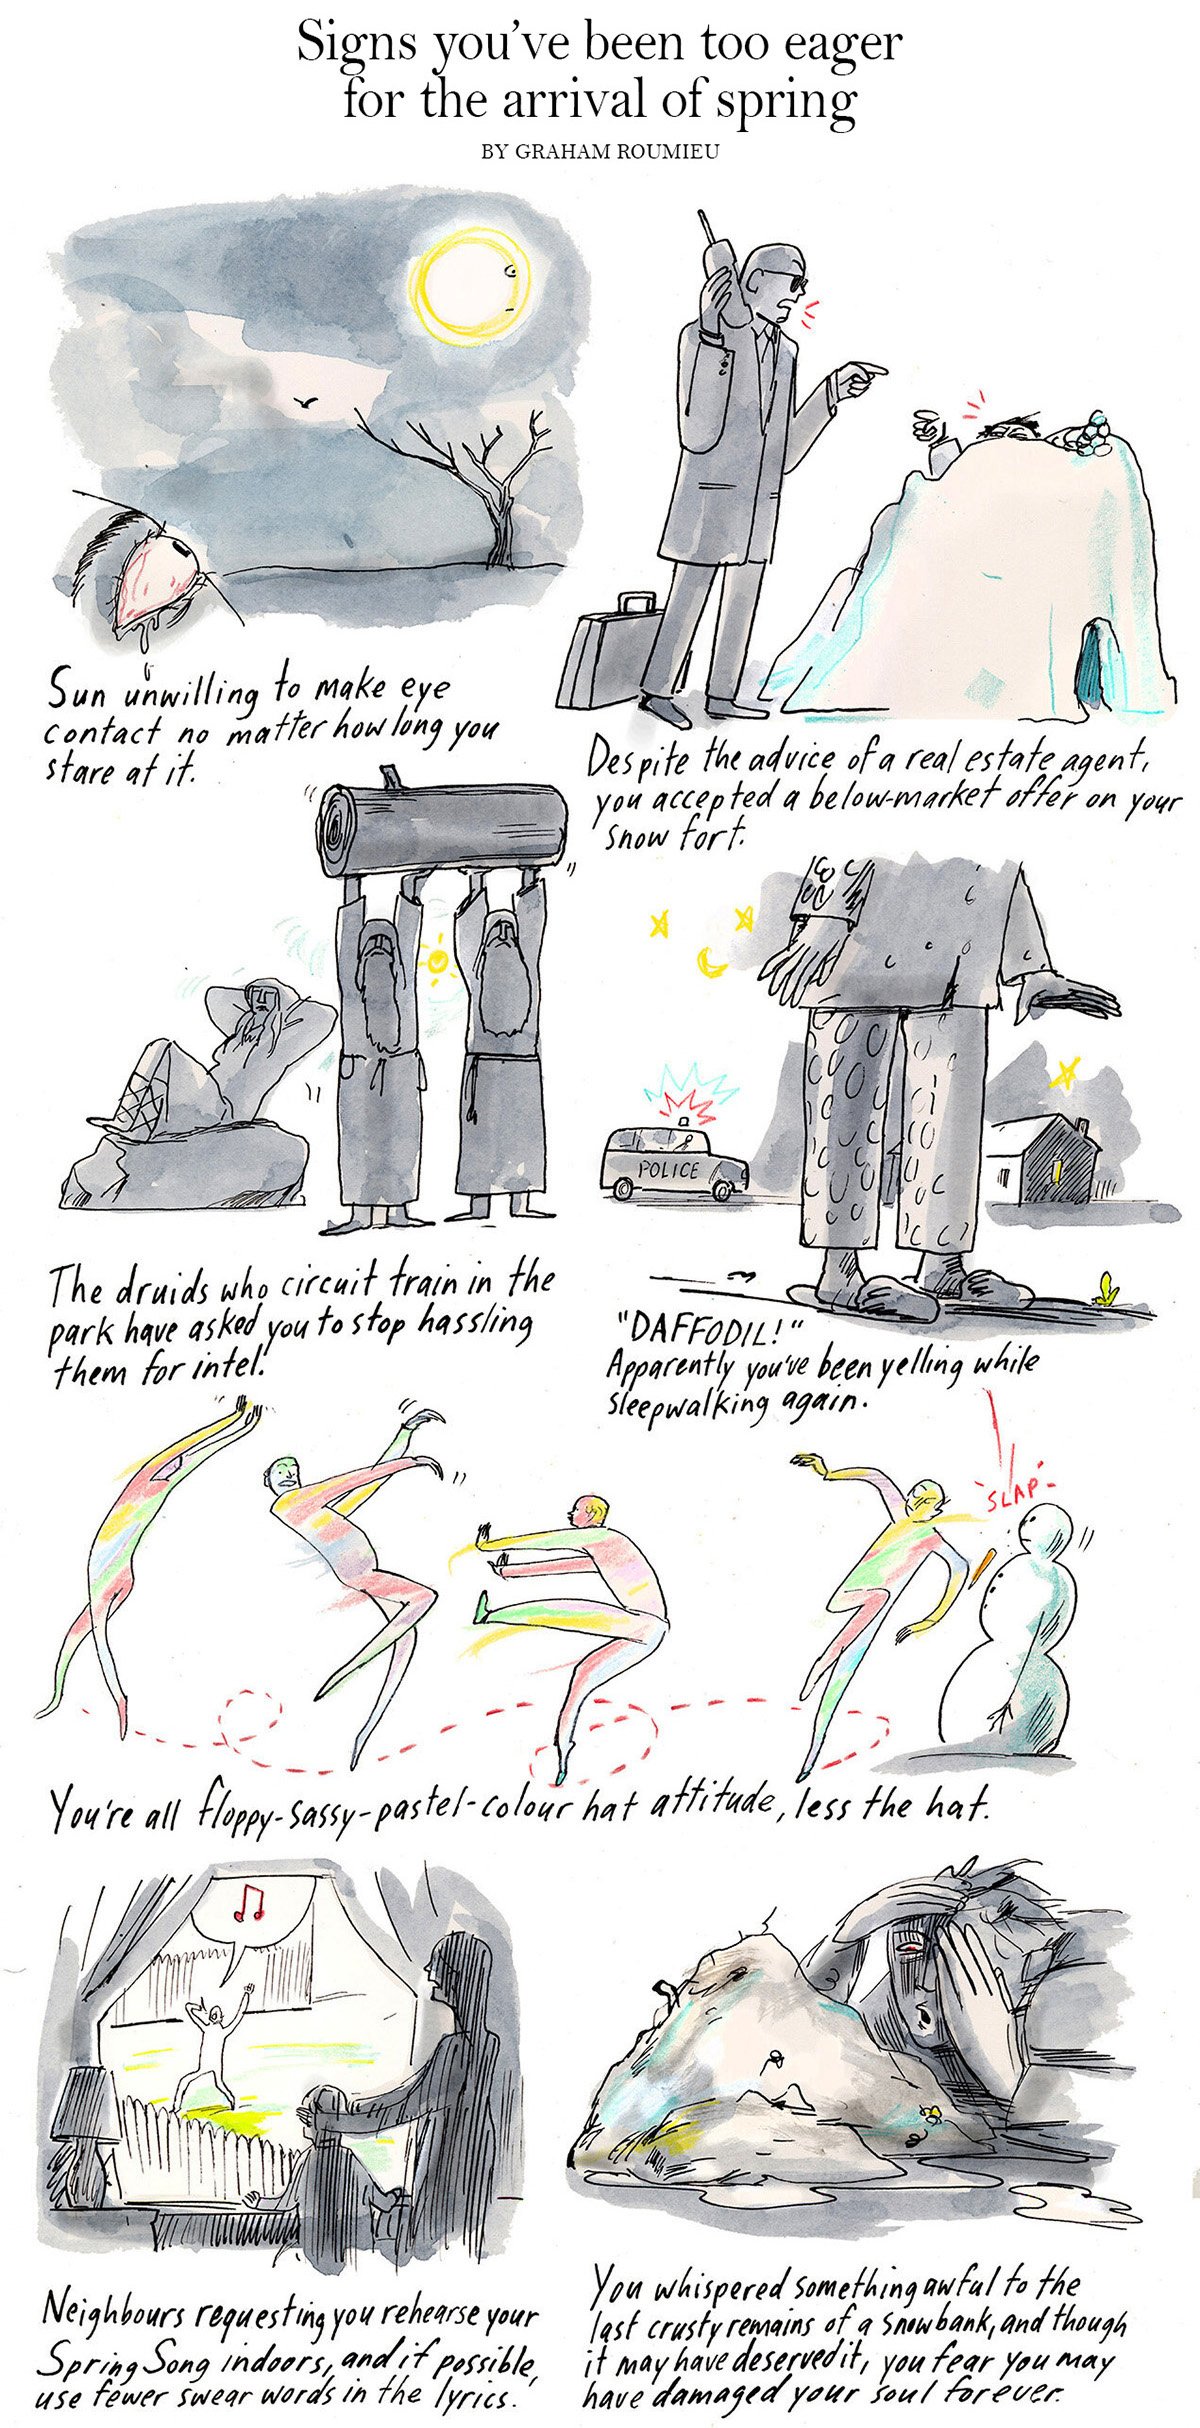 Signs you've been too eager
for the arrival of spring
BY GRAHAM ROUMIEU
Sun unwilling to make eye
contact no matter how long you
stare at it.
Despite the advice of a real estate agent,
you accepted a below-market offer on your
snow fort.
The druids who circuit train in the
park have asked you to stop hassling
them for intel.
POLICE
"DAFFODIL!"
Apparently you've been yelling while
sleepwalking again.
SLAP
You're all floppy-sassy-pastel-colour hat attitude, less the hat.
Neighbours requesting you rehearse your
Spring Song indoors, and if possible,
use fewer swear words in the lyrics.
You whispered something awful to the
last crusty remains of a snowbank, and though
it may have deserved it, you fear you may
have damaged your soul forever.